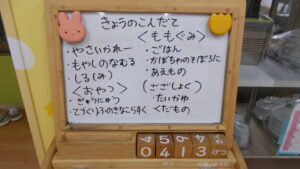 きょうのこんだて
＜ももぐみ＞
・やさいかれー
・もやしのなむる
・しる(み)
＜おやつ＞
・ぎゅうにゅう
・ごはん
・かぼちゃのそぼろに
・あえもの
(ごごしょく)
・たいがゆ
・くだもの
0 4 1 3